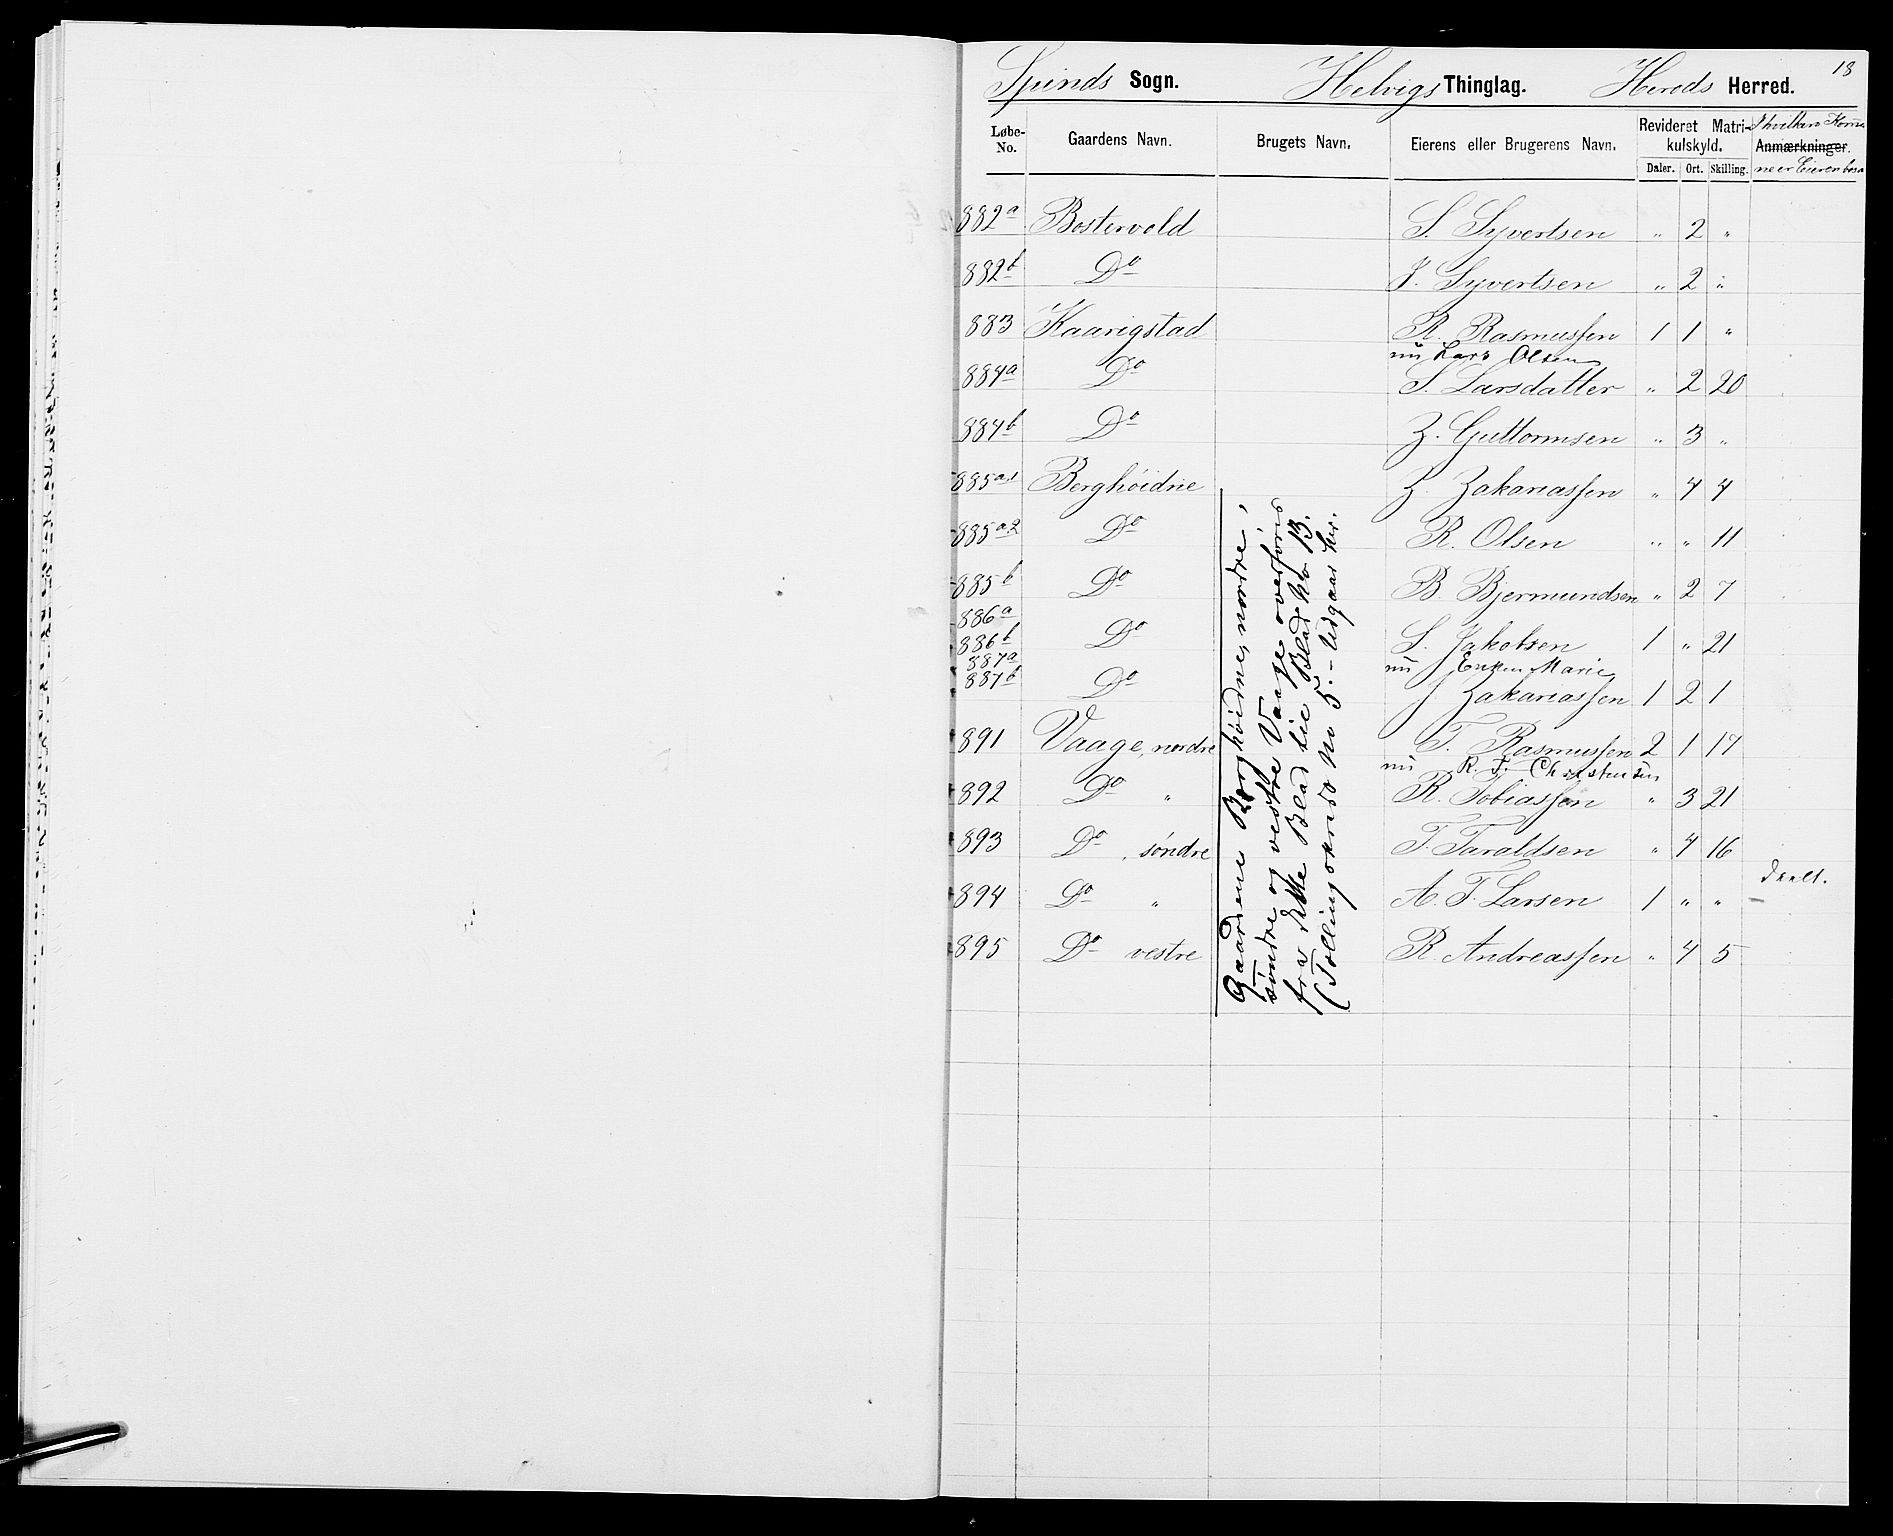 18
Spinds Sogn. Helvigs Thinglag. Hereds Herred.
Løbe-No. Gaardens Navn. Brugets Navn. Eierens eller Brugerens Navn. Revideret Matrikulskyld. Daler. Ort. Skilling. Anmærkninger. I hvilken Komuneer Eieren bosa
882a Bostervold S. Syvertsen „ 2 „
882b Do J. Syvertsen „ 2 „
883 Kaarigstad R. Rasmussen 1 1 „
nu Lars Olsen
884a Do S. Larsdatter „ 2 20
884b Do Z. Guttormsen „ 3 „
885a1 Berghöidne Z. Zakariassen „ 4 4
885a2 Do R. Olsen „ „ 11
885b Do B Bjermundsen „ 2 7
886a
886b Do S. Jakobsen 1 „ 21
887a nu Enken Marie
887b Do J Zakariassen 1 2 1
891 Vaage, nordre T. Rasmussen 2 1 17
nu R. T. Christensen
892 Do „ R. Tobiassen „ 3 21
893 Do , søndre T. Taraldsen „ 4 16
deelt.
894 Do „ A. T. Larsen 1 „ „
895 Do vestre R. Andreassen „ 4 5
Gaardene Berghöidne, nordre,
søndre og vestre Vaage overføres
fra dette Blad til Blad No 13.
(Tollingskreds No 5. - Udgaar her.